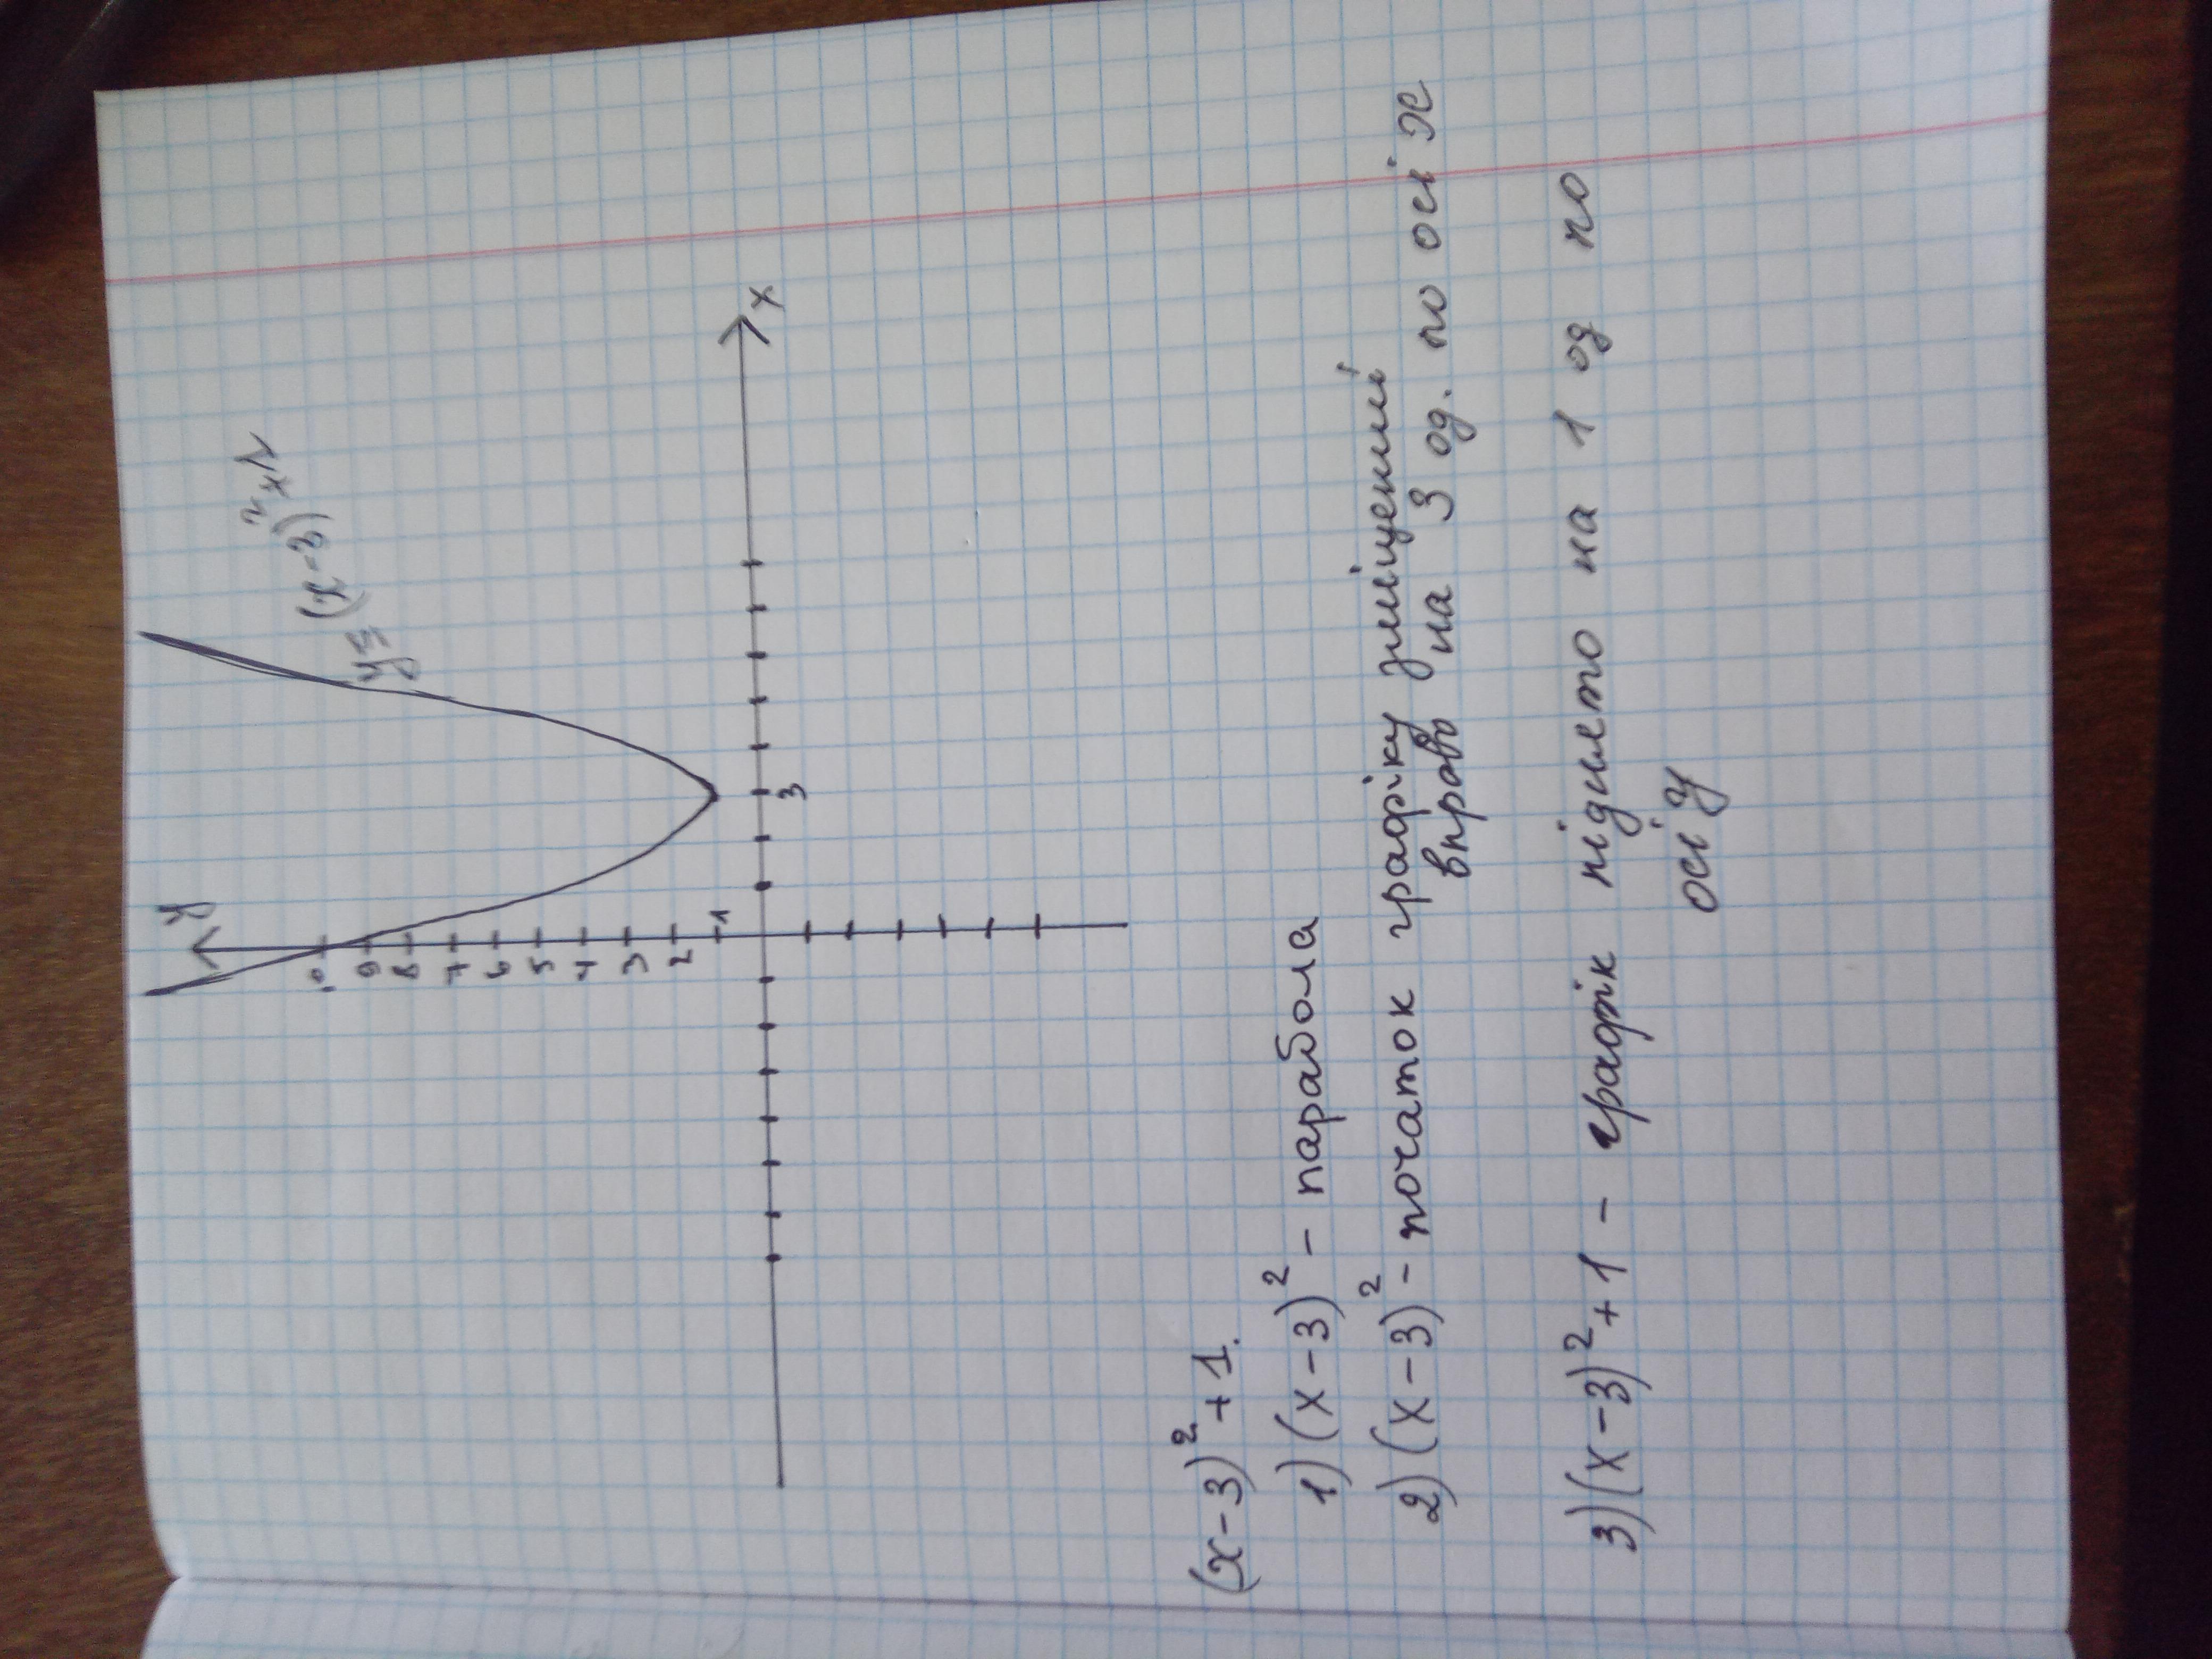 y
10
9
8
7
6
5
4
3
2
1
3
x
(x-3)²+1.
1) (x-3)² - парабола
2) (x-3)² - початок графіку зміщений
вправо на 3 од. по осі x
3) (x-3)²+1 - графік піднято на 1 од по
осі y